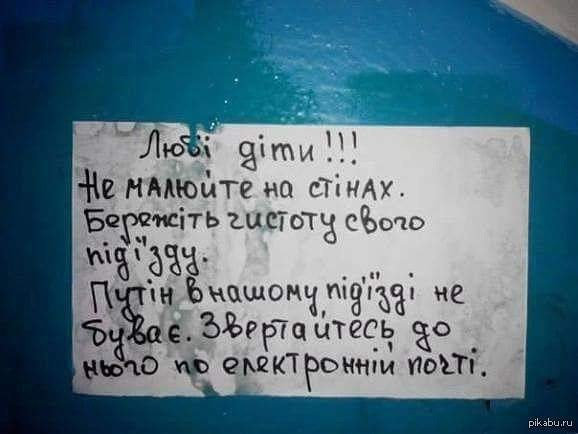 Любі діти!!!
Не малюйте на стінах.
Бережіть чистоту свого
під'їзду.
Путін в нашому під'їзді не
буває. Звертайтесь до
нього по електронній почті.
pikabu.ru